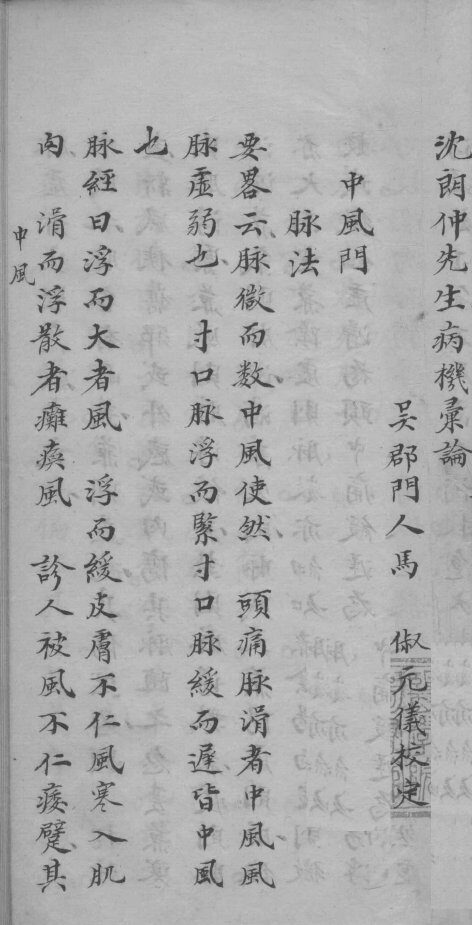 沈朗仲先生病機彙論
吴郡門人馬俶元儀校定
中風門
脉法
要畧云脉微而数中風使然 頭痛脉滑者中風風
脉虚弱也 寸口脉浮而緊寸口脉緩而遲皆中風
也
脉經曰浮而大者風 浮而緩皮膚不仁風寒入肌
肉 滑而浮散者癱瘓風 診人被風不仁痿躄其
中風